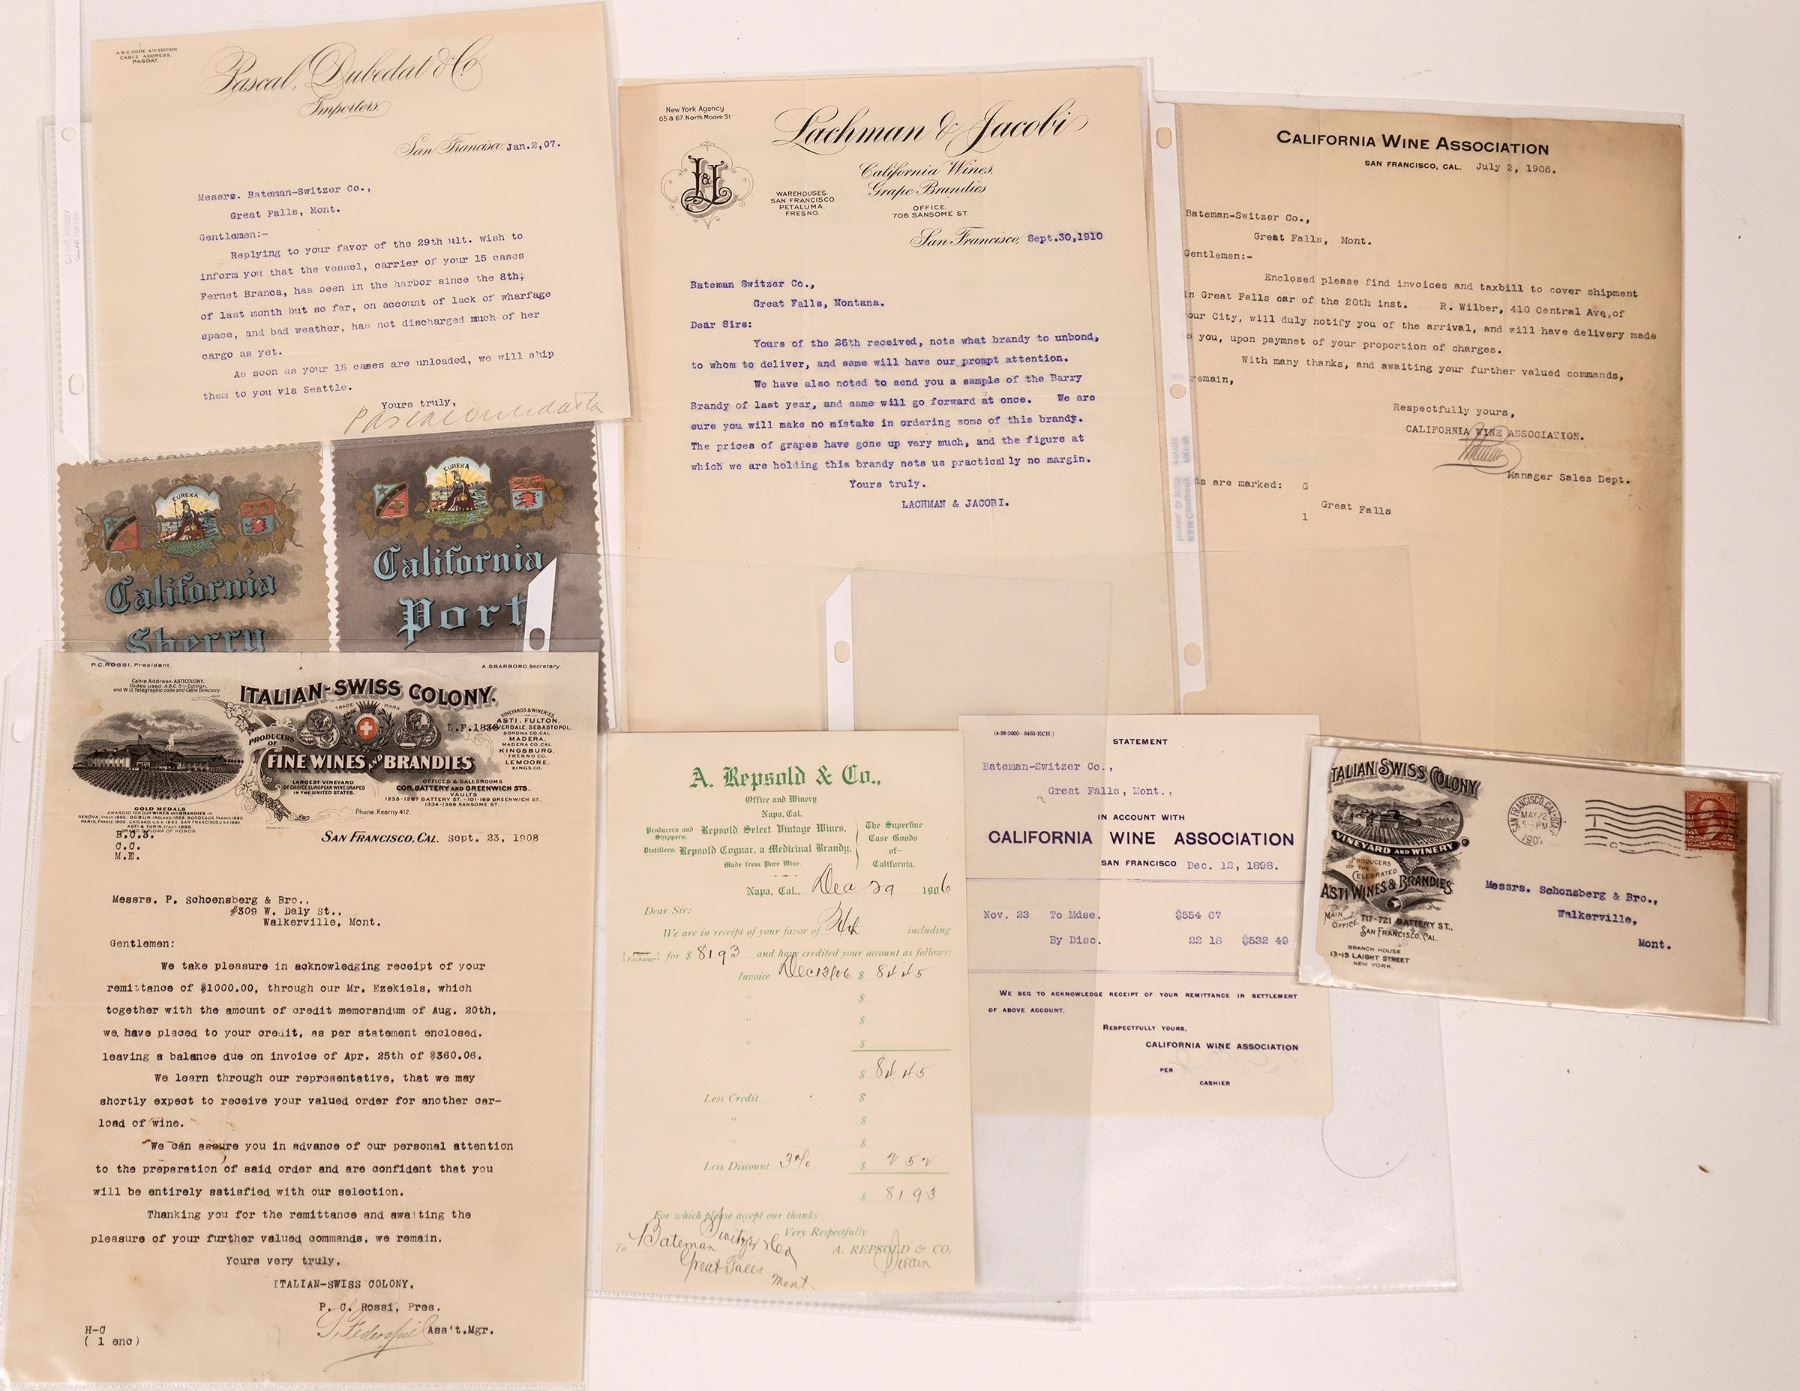 A.B.C. CODE 4TH EDITION
CABLE ADDRESS,
PASDAT.
Pascal, Dubedat & Co
Importers
San Francisco, Jan.2,07.
Messrs. Bateman-Switzer Co.,
Great Falls, Mont.
Gentlemen:-
Replying to your favor of the 29th ult. wish to
inform you that the vessel, carrier of your 15 cases
Fernet Branca, has been in the harbor since the 8th,
of last month but so far, on account of lack of wharfage
space, and bad weather, has not discharged much of her
cargo as yet.
As soon as your 15 cases are unloaded, we will ship
them to you via Seattle.
Yours truly,
New York Agency
65 & 67 North Moore St
L&J
Lachman & Jacobi
California Wines
Grape Brandies
WAREHOUSES.
SAN FRANCISCO.
PETALUMA.
FRESNO.
OFFICE.
706 SANSOME ST
San Francisco, Sept.30,1910
Bateman Switzer Co.,
Great Falls, Montana.
Dear Sirs:
Yours of the 26th received, note what brandy to unbond,
to whom to deliver, and same will have our prompt attention.
We have also noted to send you a sample of the Barry
Brandy of last year, and same will go forward at once. We are
sure you will make no mistake in ordering some of this brandy.
The prices of grapes have gone up very much, and the figure at
which we are holding this brandy nets us practically no margin.
Yours truly.
LACHMAN & JACOBI.
CALIFORNIA WINE ASSOCIATION
SAN FRANCISCO, CAL. July 2, 1906.
Bateman-Switzer Co.,
Great Falls, Mont.
Gentlemen:-
Enclosed please find invoices and taxbill to cover shipment
in Great Falls car of the 20th inst. R. Wilber, 410 Central Ave,of
your City, will duly notify you of the arrival, and will have delivery made
to you, upon paymnet of your proportion of charges.
With many thanks, and awaiting your further valued commands,
remain,
Respectfully yours,
CALIFORNIA WINE ASSOCIATION.
Manager Sales Dept.
ds are marked: G
Great Falls
1
EUREKA
California
Sherry
EUREKA
California
Port
P.C. ROSSI, President.
A. SBARBORO, Secretary
Cable Address ASTICOLONY.
Codes used A.B.C. 5th Edition,
and W.U. Telegraphic code and Cable Directory
ITALIAN-SWISS COLONY.
TRADE MARK
L.F.1838
PRODUCERS OF
FINE WINES AND BRANDIES
VINEYARDS & WINERIES
ASTI, FULTON,
CLOVERDALE, SEBASTOPOL,
SONOMA CO. CAL.
MADERA,
MADERA CO. CAL.
KINGSBURG,
FRESNO CO.
LEMOORE,
KINGS CO.
LARGEST VINEYARD
OF CHOICE EUROPEAN WINE GRAPES
IN THE UNITED STATES.
OFFICES & SALESROOMS
COR. BATTERY AND GREENWICH STS.
VAULTS
1235-1267 BATTERY ST. - 101-169 GREENWICH ST.
1334-1366 SANSOME ST.
Phone, Kearny 412.
GOLD MEDALS
GRAND DIPLOMA OF HONOR
SAN FRANCISCO, CAL. Sept. 23, 1908
B.C.S.
C.C.
M.E.
Messrs. P. Schoensberg & Bro.,
#309 W. Daly St.,
Walkerville, Mont.
Gentlemen:
We take pleasure in acknowledging receipt of your
remittance of $1000.00, through our Mr. Ezekiels, which
together with the amount of credit memorandum of Aug. 20th,
we have placed to your credit, as per statement enclosed,
leaving a balance due on invoice of Apr. 25th of $360.06.
We learn through our representative, that we may
shortly expect to receive your valued order for another car-
load of wine.
We can assure you in advance of our personal attention
to the preparation of said order and are confident that you
will be entirely satisfied with our selection.
Thanking you for the remittance and awaiting the
pleasure of your further valued commands, we remain,
Yours very truly,
ITALIAN-SWISS COLONY,
P. C. Rossi, Pres.
Ass't.Mgr.
H-C
( 1 enc)
A. Repsold & Co.,
Office and Winery
Napa, Cal.
Producers and Shippers. Repsold Select Vintage Wines,
Distillers: Repsold Cognac, a Medicinal Brandy,
Made from Pure Wine.
The Superfine
Case Goods
-of-
California.
Napa, Cal., Dec 29 1906
Dear Sir:
We are in receipt of your favor of 24 including
for $ 8193 and have credited your account as follows:
Invoice Dec 12/06 $ 8445
" $
" $
" $
$ 8445
Less Credit $
" $
" $
Less Discount 3% $ 252
$ 8193
For which please accept our thanks
Very Respectfully
To Bateman Switzer & Co A. REPSOLD & CO.
Great Falls
Mont.
(4-98-2000 - 8460-HCH.)
STATEMENT
Bateman-Switzer Co.,
Great Falls, Mont.,
IN ACCOUNT WITH
CALIFORNIA WINE ASSOCIATION
SAN FRANCISCO Dec. 12, 1898.
Nov. 23 To Mdse. $554 67
By Disc. 22 18 $532 49
WE BEG TO ACKNOWLEDGE RECEIPT OF YOUR REMITTANCE IN SETTLEMENT
OF ABOVE ACCOUNT.
RESPECTFULLY YOURS,
CALIFORNIA WINE ASSOCIATION
PER
CASHIER
ITALIAN SWISS COLONY
VINEYARD AND WINERY
PRODUCERS
OF THE
CELEBRATED
ASTI WINES & BRANDIES
MAIN OFFICE 717-721 BATTERY ST.,
SAN FRANCISCO, CAL.
BRANCH HOUSE
13-15 LAIGHT STREET
NEW YORK.
SAN FRANCISCO, CAL.
MAY 2
5-PM
190
Messrs. Schonsberg & Bro.,
Walkerville,
Mont.